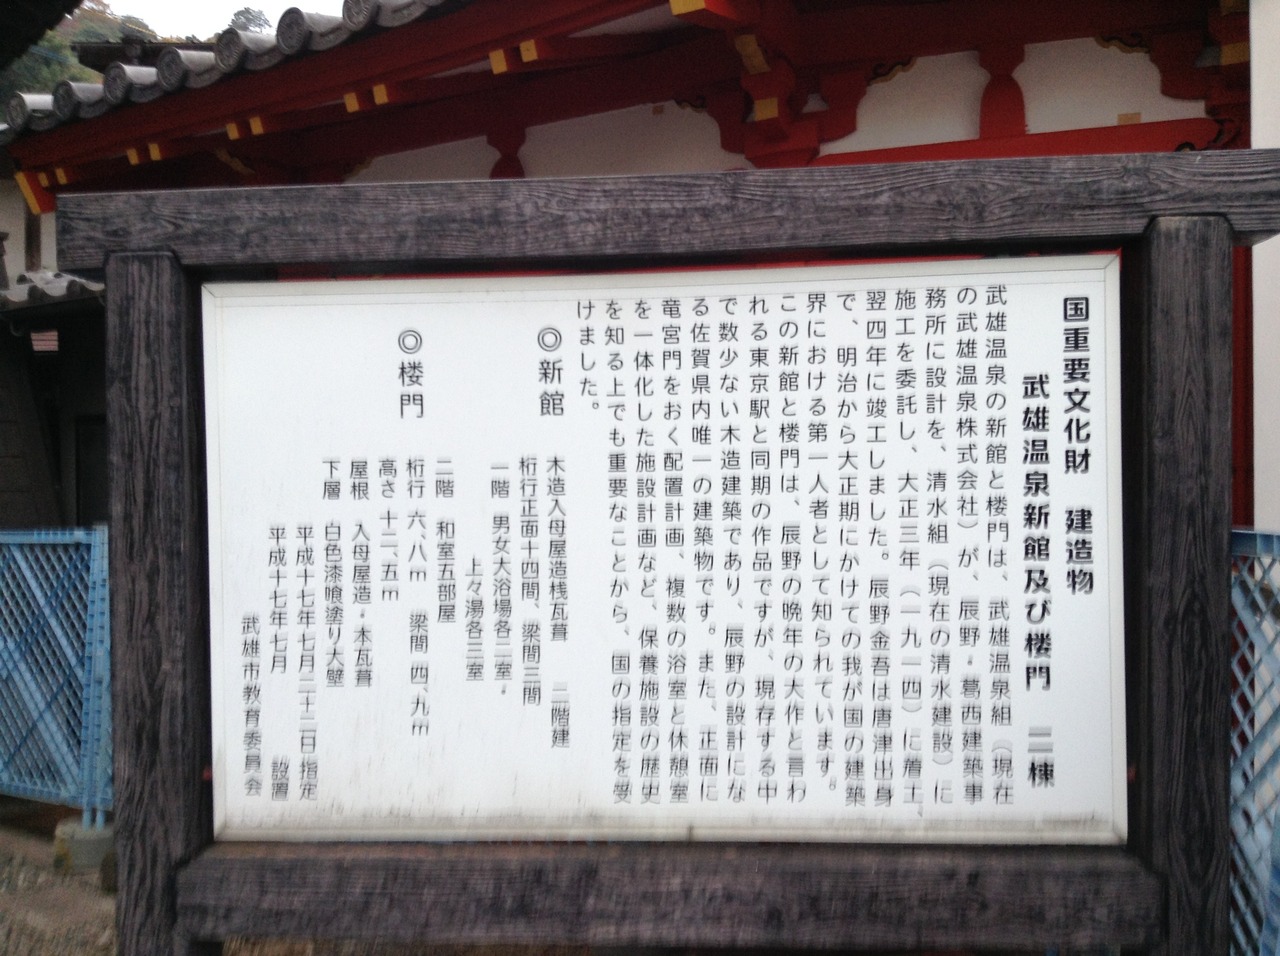 国重要文化財　建造物
武雄温泉新館及び楼門　二棟
武雄温泉の新館と楼門は、武雄温泉組（現在
の武雄温泉株式会社）が、辰野・葛西建築事
務所に設計を、清水組（現在の清水建設）に
施工を委託し、大正三年（一九一四）に着工、
翌四年に竣工しました。辰野金吾は唐津出身
で、明治から大正期にかけての我が国の建築
界における第一人者として知られています。
この新館と楼門は、辰野の晩年の大作と言わ
れる東京駅と同期の作品ですが、現存する中
で数少ない木造建築であり、辰野の設計にな
る佐賀県内唯一の建築物です。また、正面に
竜宮門をおく配置計画、複数の浴室と休憩室
を一体化した施設計画など、保養施設の歴史
を知る上でも重要なことから、国の指定を受
けました。
◎新館　木造入母屋造桟瓦葺　二階建
桁行正面十四間、梁間三間
一階　男女大浴場各二室・
上々湯各三室
二階　和室五部屋
◎楼門　桁行　六、八ｍ　梁間　四、九ｍ
高さ　十二、五ｍ
屋根　入母屋造・本瓦葺
下層　白色漆喰塗り大壁
平成十七年七月二十二日指定
平成十七年七月　設置
武雄市教育委員会